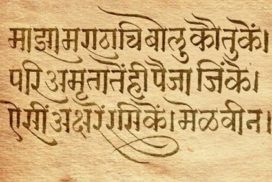 माझा मराठाचि बोलु कौतुकें।
परि अमृतातेंही पैजा जिंके।
ऐसीं अक्षरें रसिकें। मेळवीन।